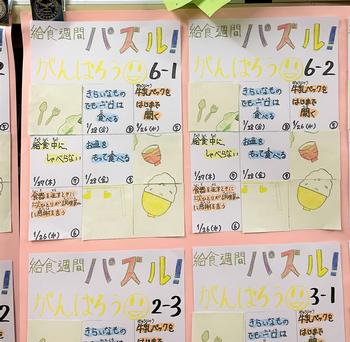 給食週間 パズル!
がんばろう 6-1
きらいなもの
でも一口は
食べる
1/28(金) ③
牛乳パックを
はしまで
開く
1/26(水) ⑤
給食中に
しゃべらない
1/27(木) ⑤
お皿を
もって食べる
1/28(金) ④
1/26(水) ⑥
給食週間 パズル!
がんばろう 6-2
きらいなもの
でも一口は
食べる
1/28(金) ③
牛乳パックを
はしまで
開く
1/26(水) ⑤
給食中に
しゃべらない
1/27(木) ⑤
お皿を
もって食べる
1/28(金) ④
1/26(水) ⑥
給食週間 パズル!
がんばろう 2-3
きらいなもの
でも一口は
牛乳パックを
給食週間 パズル!
がんばろう 3-1
きらいなもの
でも一口は
牛乳パックを